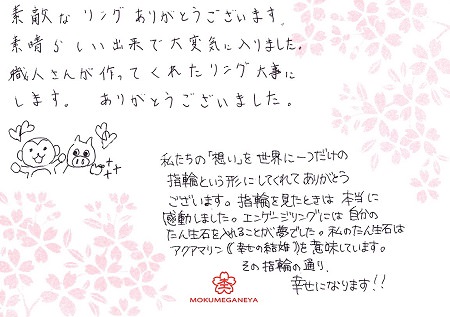 素敵なリングありがとうございます。
素晴らしい出来で大変気に入りました。
職人さんが作ってくれたリング大事に
します。 ありがとうございました。
私たちの「想い」を世界に一つだけの
指輪という形にしてくれてありがとう
ございます。指輪を見たときは本当に
感動しました。エンゲージリングには自分の
たん生石を入れることが夢でした。私のたん生石は
アクアマリン《幸せの結婚》を意味しています。
その指輪の通り、
幸せになります!!
MOKUMEGANEYA